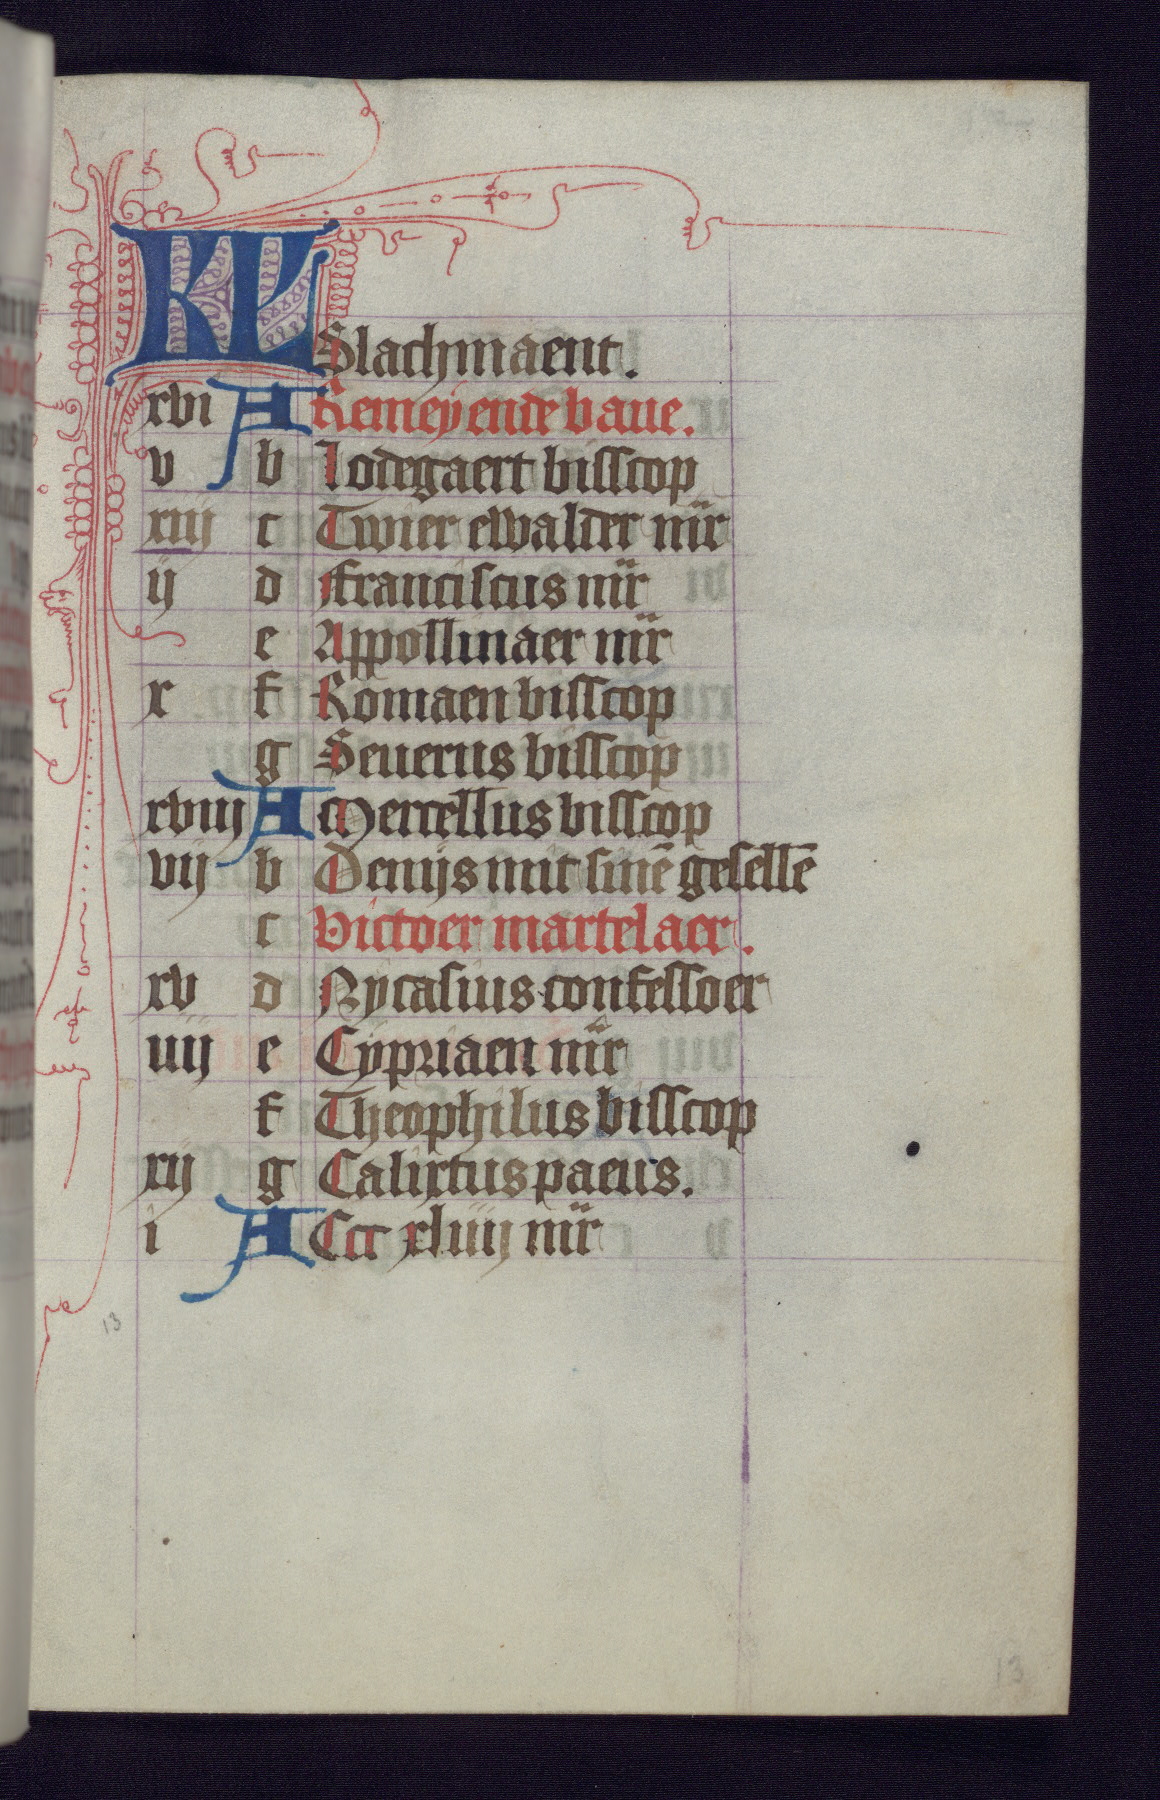 KL Slachmaent.
xvi A Remey ende baue.
v b Lodegaert bisscop
xiij c Twier ewalder mr̄
ij d Franciscus mr̄
e Appollinaer mr̄
x f Romaen bisscop
g Seuerus bisscop
xviij A Mercellus bisscop
vij b Denijs mit sinē gesellē
c Victoer martelaer.
xv d Nycasius confessoer
iiij e Cypriaen mr̄
f Theophilus bisscop
xij g Calixtus paeus.
i A Ccc xliiij mr̄
13
13